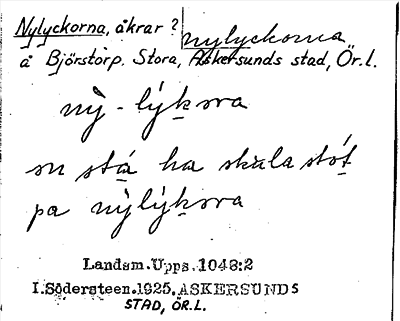 Nylyckorna, åkrar? nylyckorna
å Björstorp. Stora, Askersunds stad, Ör.l.
nỳ - lýkora
on stá ha skala stót
pa nỳlýkora
Landsm.Upps.1048:2
I.Södersteen.1925.ASKERSUNDS
STAD, ÖR.L.